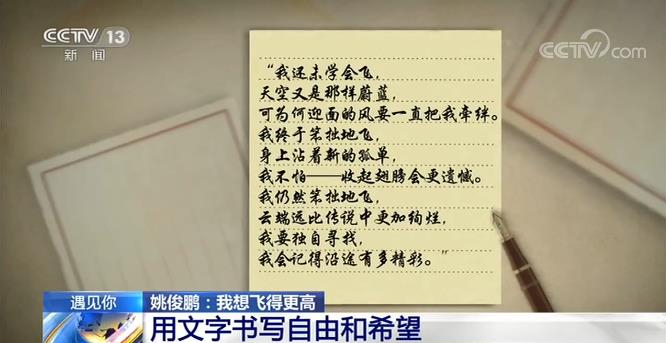 CCTV 13
新闻
CCTV com
“我还未学会飞，
天空又是那样蔚蓝，
可为何迎面的风要一直把我牵绊。
我终于笨拙地飞，
身上沾着新的孤单，
我不怕——收起翅膀会更遗憾。
我仍然笨拙地飞，
云端远比传说中更加绚烂，
我要独自寻找，
我会记得沿途有多精彩。”
遇见你
姚俊鹏：我想飞得更高
用文字书写自由和希望